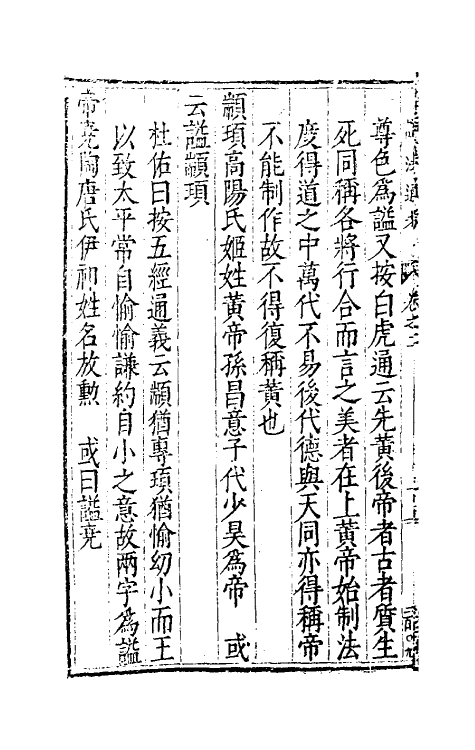 卷之二
尊色爲謚又按白虎通云先黃後帝者古者質生
死同稱各將行合而言之美者在上黃帝始制法
度得道之中萬代不易後代德與天同亦得稱帝
不能制作故不得復稱黃也
顓頊高陽氏姬姓黃帝孫昌意子代少昊爲帝　或
云謚顓頊
杜佑曰按五經通義云顓猶專頊猶愉幼小而王
以致太平常自愉愉謙約自小之意故兩字爲謚
帝堯陶唐氏伊祁姓名放勲　或曰謚堯